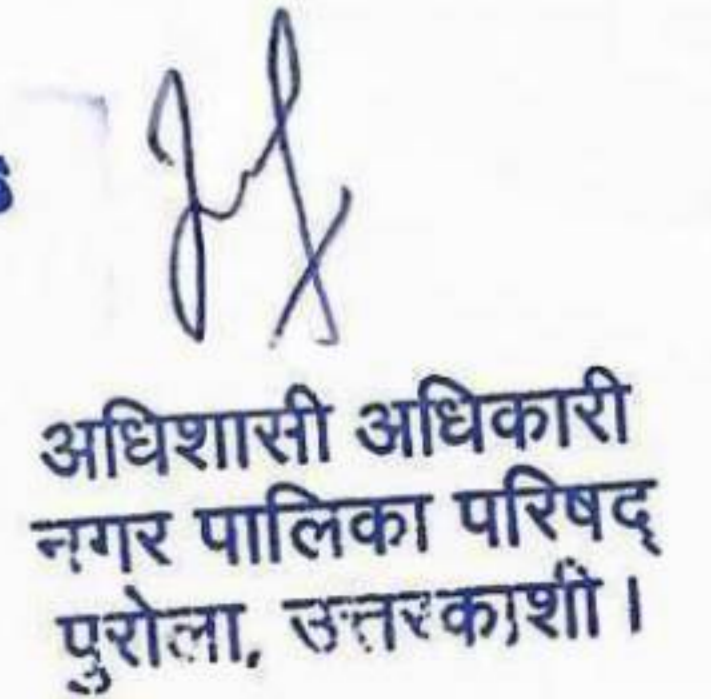 अधिशासी अधिकारी
नगर पालिका परिषद्
पुरोला, उत्तरकाशी।